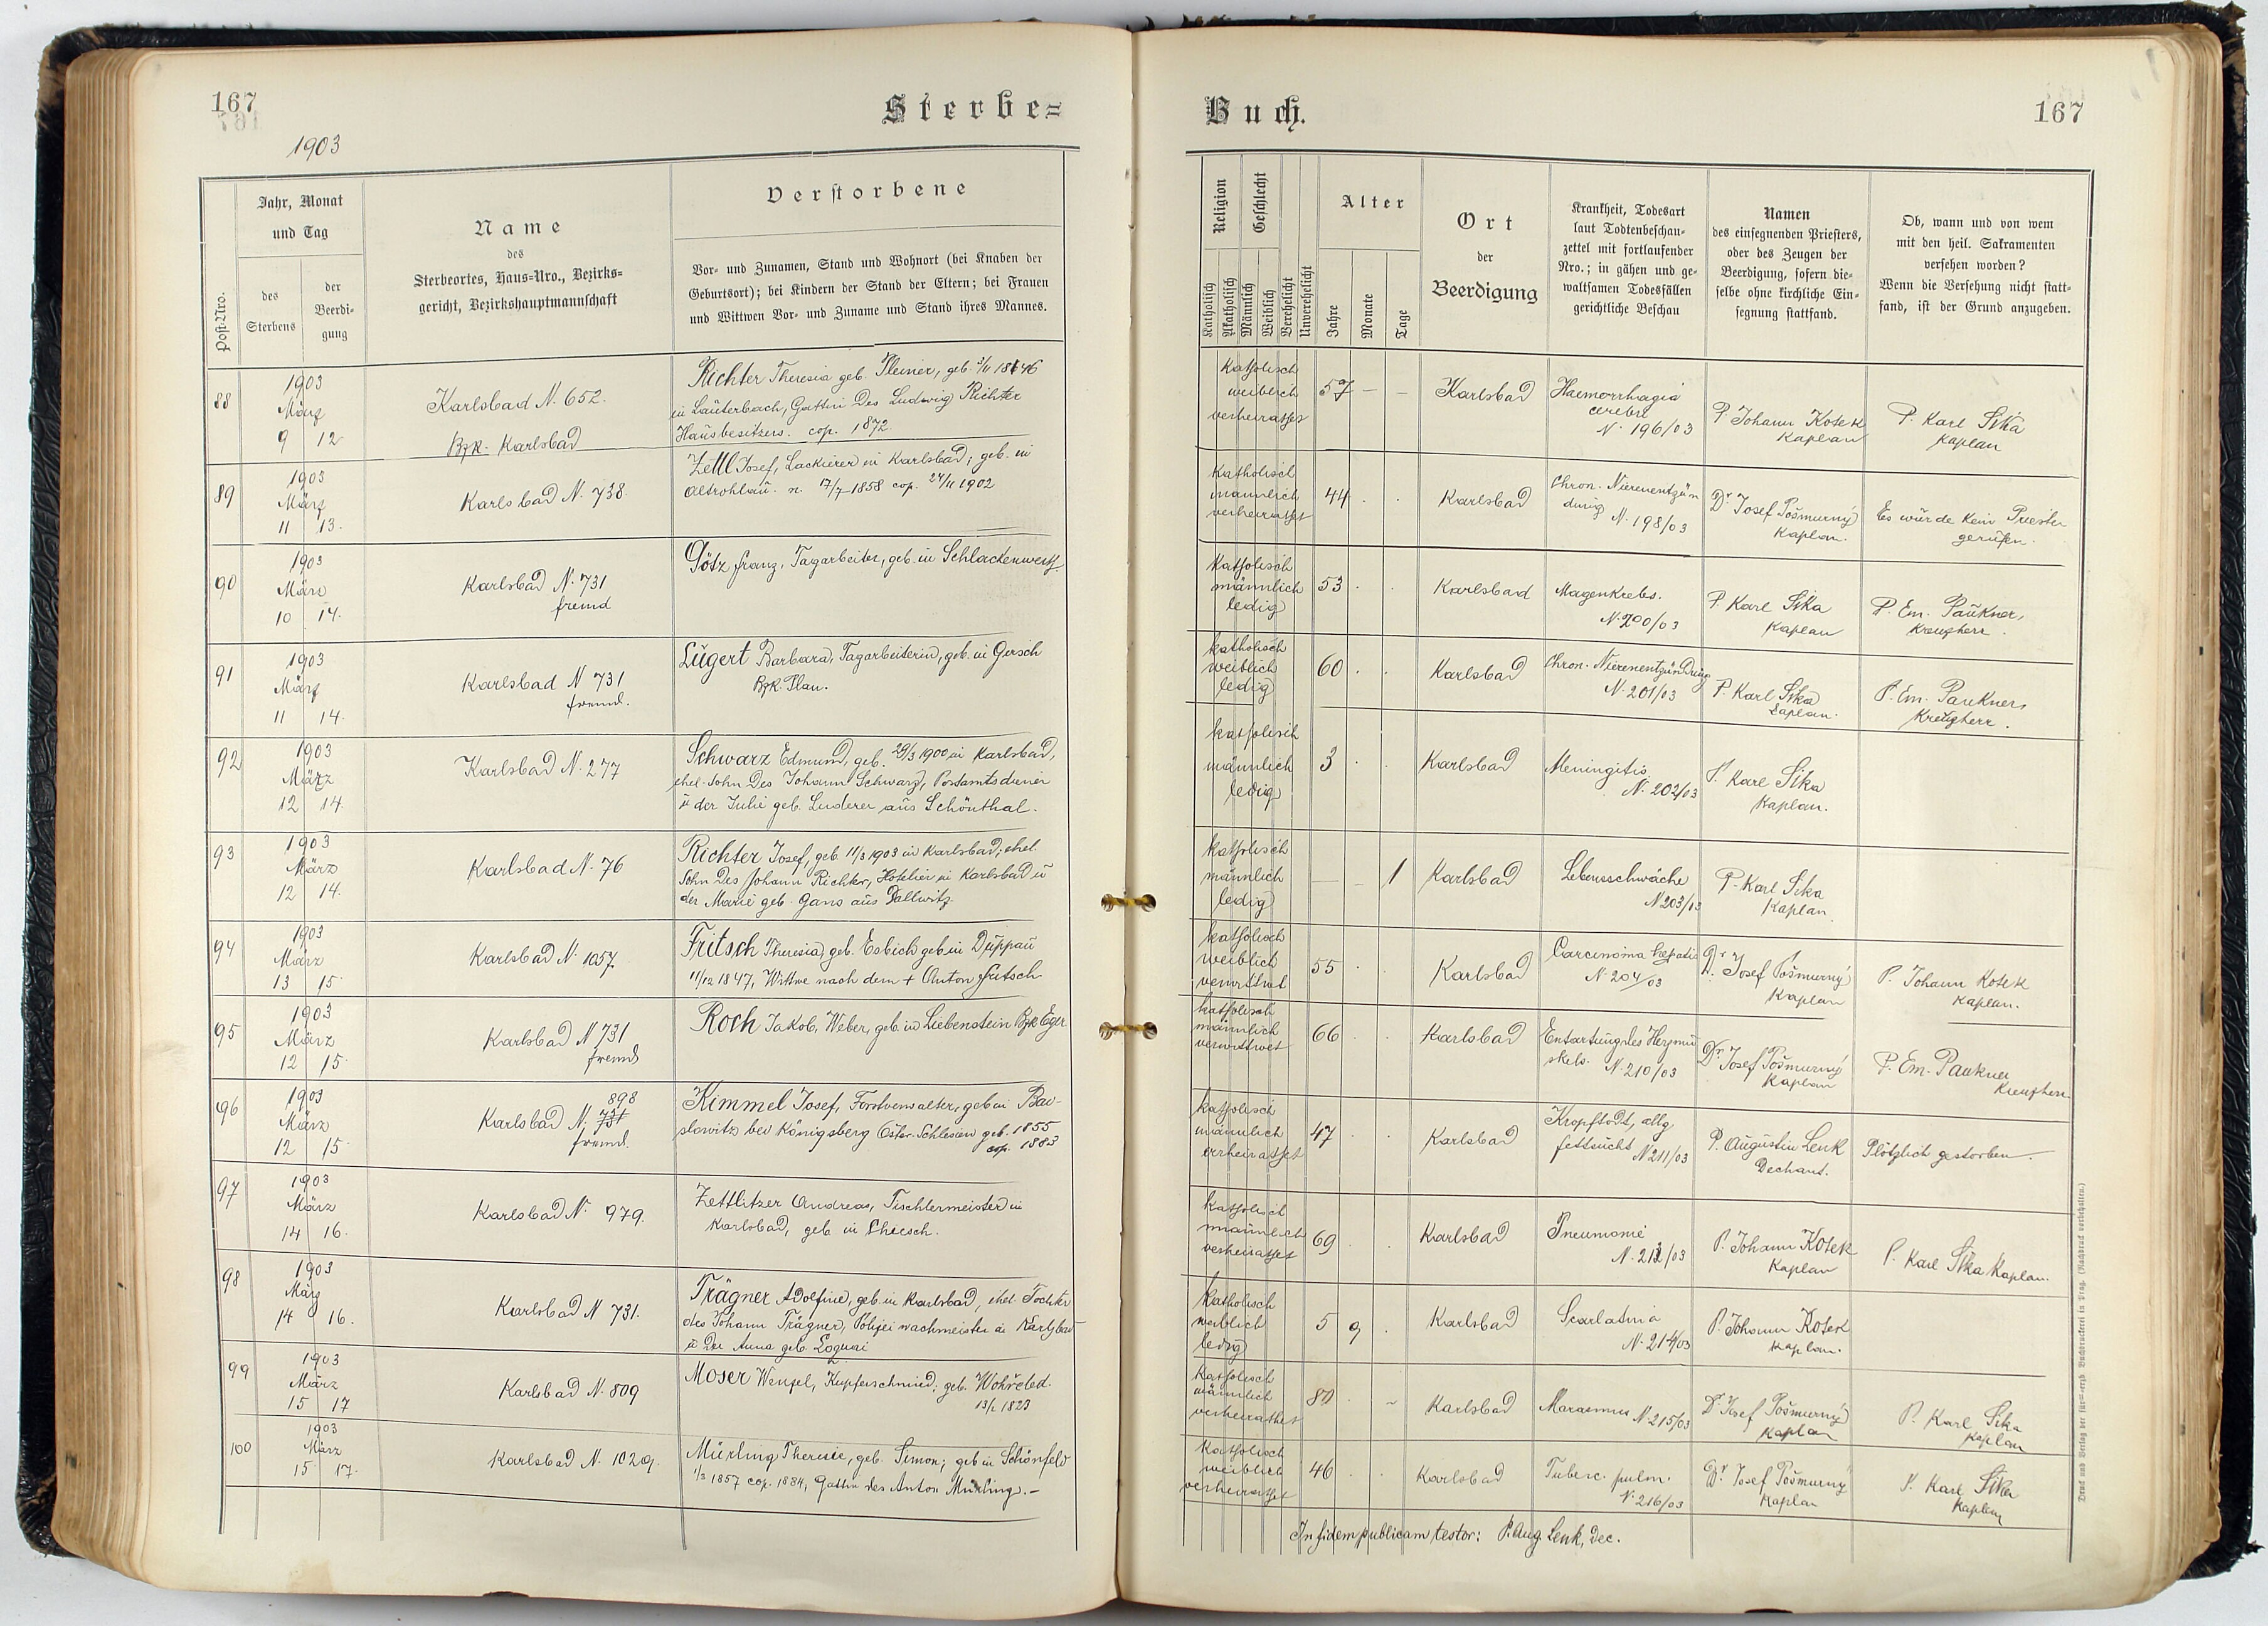 167
1903
Sterbe=
Post-Nro.
Jahr, Monat
und Tag
des
Sterbens
der
Beerdi-
gung
Name
des
Sterbeortes, Haus-Nro., Bezirks=
gericht, Bezirkshauptmannschaft
Verstorbene
Vor- und Zunamen, Stand und Wohnort (bei Knaben der
Geburtsort); bei Kindern der Stand der Eltern; bei Frauen
und Wittwen Vor- und Zuname und Stand ihres Mannes.
88
1903
März
9 12
Karlsbad N. 652.
Bzk. Karlsbad
Richter Theresia geb. Pleiner, geb.
in Lauterbach, Gattin des Ludwig Richter
Hausbesitzers. cop. 1872.
89
1903
März
11 13.
Karlsbad N. 738.
Zettl Josef, Lackierer in Karlsbad; geb. in
Altrohlau. n. 17/7 1858 cop. 24/11 1902
90
1903
März
10 14.
Karlsbad N. 731
fremd
Götz Franz, Tagarbeiter, geb. in Schlackenwerth.
91
1903
März
11 14.
Karlsbad N 731
fremd.
Lugert Barbara, Tagarbeiterin, geb. in Girsch
Bzk. Plan.
92
1903
März
12 14.
Karlsbad N. 277
Schwarz Edmund, geb. 29/3 1900 in Karlsbad,
ehel. Sohn des Johann Schwarz, Postamtsdiener
u der Julie geb. Luderer aus Schönthal.
93
1903
März
12 14.
Karlsbad N. 76
Richter Josef, geb. 11/3 1903 in Karlsbad; ehel.
Sohn des Johann Richter, Hotelier in Karlsbad u
der Marie geb. Gans aus Dallwitz.
94
1903
März
13 15.
Karlsbad N. 1057.
Fritsch Theresia, geb. Esbich geb in Duppau
11/12 1847, Wittwe nach dem + Anton Fritsch
95
1903
März
12 15.
Karlsbad N 731
fremd
Roch Jakob, Weber, geb. in Liebenstein Bzk Eger
96
1903
März
12 15.
898
Karlsbad N. 731
fremd.
Kimmel Josef, Forstverwalter, geb in
bei Königsberg Öster. Schlesien geb. 1855
cop. 1883
97
1903
März
14 16.
Karlsbad N. 979.
Zettlitzer Andreas, Tischlermeister in
Karlsbad, geb. in
98
1903
März
14 16.
Karlsbad N 731.
Trägner Adolfine, geb. in Karlsbad, ehel. Tochter
des Johann Trägner, Polizei wachmeister in Karlsbad
u der Anna geb.
99
1903
März
15 17
Karlsbad N. 809
Moser Wenzel, Kupferschmied; geb.
1823
100
1903
März
15 17.
Karlsbad N. 1029.
Mürling Theresie, geb. Simon; geb in Schönfeld
1/3 1857 cop. 1884, Gattin des Anton Mürling.-
Buch.
167
Religion
Geschlecht
Katholisch
Akatholisch
Männlich
Weiblich
Verehelicht
Unverehelicht
Alter
Jahre
Monate
Tage
Ort
der
Beerdigung
Krankheit, Todesart
laut Todtenbeschau-
zettel mit fortlaufender
Nro.; in gähen und ge-
waltsamen Todesfällen
gerichtliche Beschau
Namen
des einsegnenden Priesters,
oder des Zeugen der
Beerdigung, sofern die=
selbe ohne kirchliche Ein=
segnung stattfand.
Ob, wann und von wem
mit den heil. Sakramenten
versehen worden?
Wenn die Versehung nicht statt-
fand, ist der Grund anzugeben.
Katholisch
weiblich
verheirathet
57 — —
Karlsbad
Haemorrhagia
cerebri
N. 196/03
P. Johann Kotek
Kaplan
P. Karl Sika
Kaplan
Katholisch
männlich
verheirathet
44
Karlsbad
Chron. Nierenentzün
dung
N. 198/03
Dr. Josef Pošmurný
Kaplan.
Es wurde kein Priester
gerufen.
Katholisch
männlich
ledig
53
Karlsbad
Magenkrebs.
N. 200/03
P. Karl Sika
Kaplan
P. Em. Paukner,
Kreuzherr.
katholisch
weiblich
ledig
60
Karlsbad
Chron. Nierenentzündung
N. 201/03
P. Karl Sika
Kaplan.
P. Em. Paukner,
Kreuzherr.
katholisch
männlich
ledig
3
Karlsbad
Meningitis
N. 202/03
P. Karl Sika
Kaplan.
katholisch
männlich
ledig
— — 1
Karlsbad
Lebensschwäche
N 203/03
P. Karl Sika
Kaplan.
katholisch
weiblich
verwittwet
55
Karlsbad
Carcinoma hepatis
N. 204/03
Dr. Josef Pošmurný
Kaplan
P. Johann Kotek
Kaplan.
katholisch
männlich
verwittwet
66
Karlsbad
Entartung des Herzmu
skels. N. 210/03
Dr. Josef Pošmurný
Kaplan
P. Em. Paukner
Kreuzherr
katholisch
männlich
verheirathet
47
Karlsbad
Kropftodt, allg.
fettsucht N 211/03
P. Augustin Lenk
Dechant.
Plötzlich gestorben.
Katholisch
männlich
verheirathet
69
Karlsbad
Pneumonie
N. 212/03
P. Johann Kotek
Kaplan
P. Karl Sika Kaplan.
Katholisch
weiblich
ledig
5 9
Karlsbad
Scarlatina
N. 214/03
P. Johann Kotek
Kaplan.
Katholisch
männlich
verheirathet
80
Karlsbad
Marasmus N. 215/03
Dr. Josef Pošmurný
Kaplan
P. Karl Sika
Kaplan
Katholisch
weiblich
verheirathet
46
Karlsbad
Tuberc. pulm.
N. 216/03
Dr. Josef Pošmurný
Kaplan
P. Karl Sika
Kaplan
In fidem publicam testor: P. Aug. Lenk, Dec.
Druck und Verlag der fürst=erzb Buchdruckerei in Prag. (Nachdruck vorbehalten.)